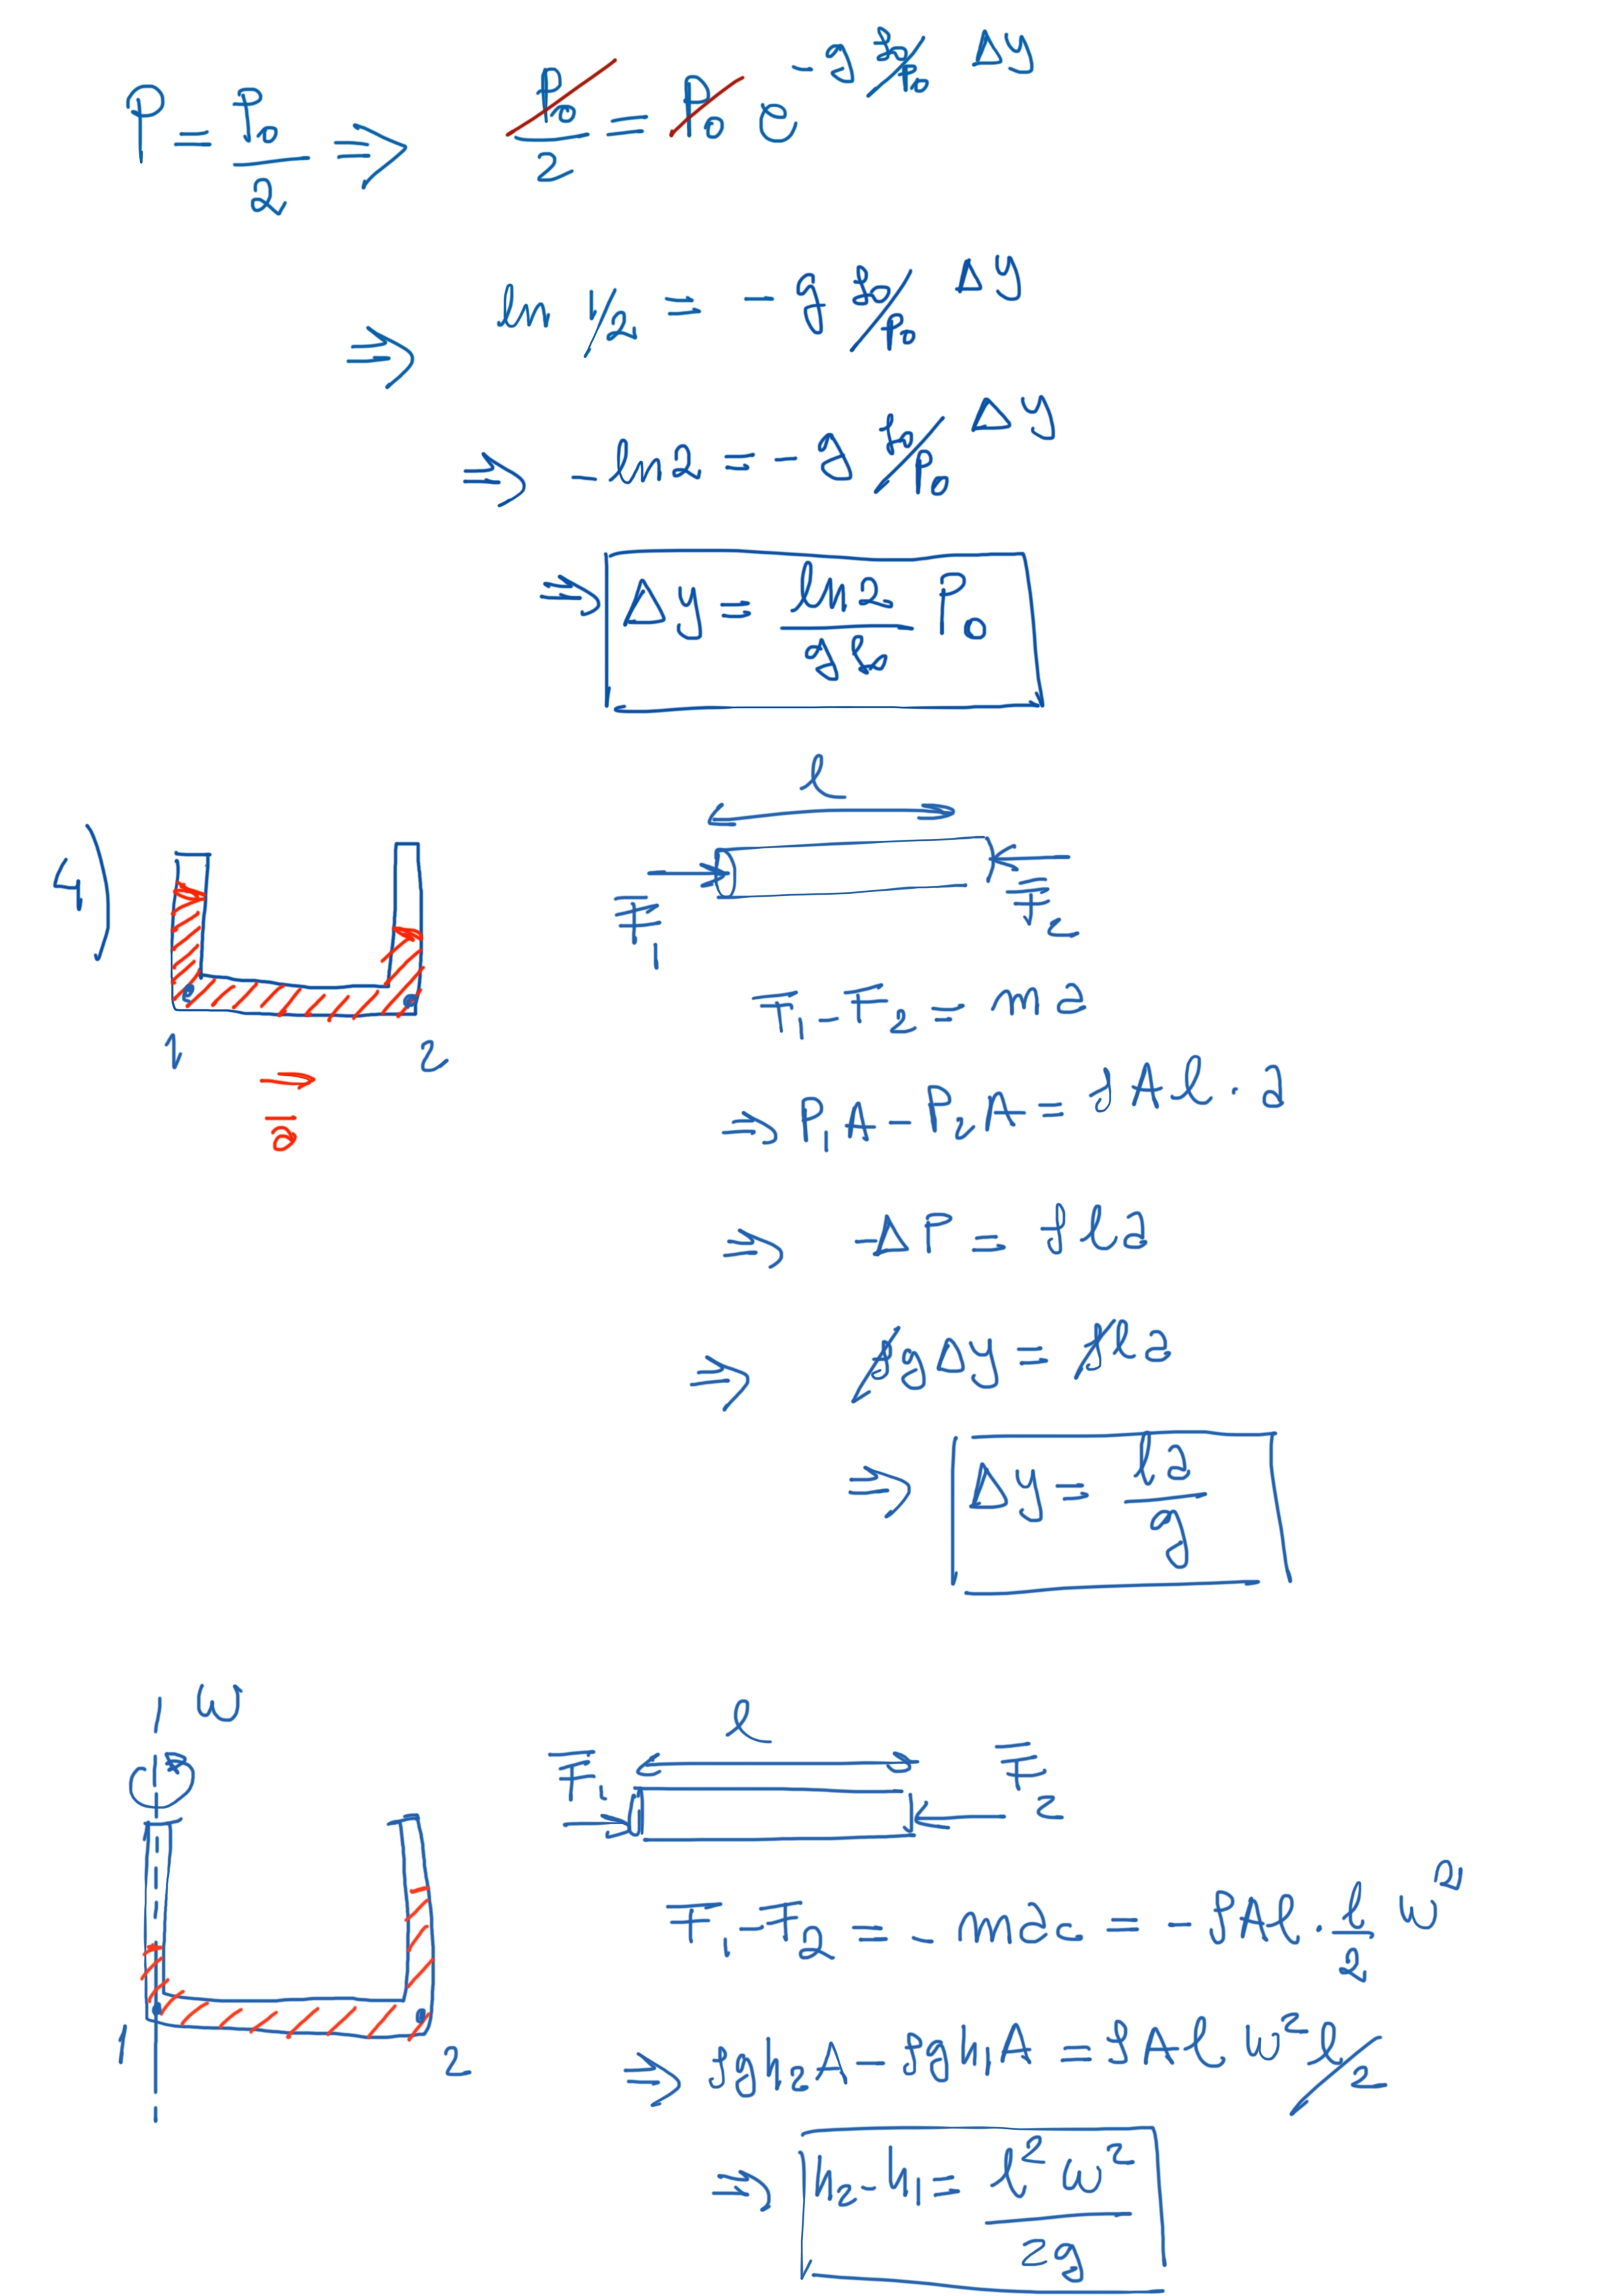 P = P₀/2 ⇒ P₀/2 = P₀ e^(-g ρ₀/P₀ Δy)
⇒ ln 1/2 = - g ρ₀/P₀ Δy
⇒ - ln 2 = - g ρ₀/P₀ Δy
⇒ Δy = ln 2/(g ρ₀) P₀
4)
l
F₁ F₂
F₁ - F₂ = m a
1 2
⇒ P₁A - P₂A = ρAl · a
a
⇒ -ΔP = ρ l a
⇒ ρ g Δy = ρ l a
⇒ Δy = l a/g
ω
l
F₁ F₂
F₁ - F₂ = - m a_c = - ρAl · l/2 ω²
1 2
⇒ ρgh₂A - ρgh₁A = ρAl ω² l/2
⇒ h₂ - h₁ = l² ω²/2g